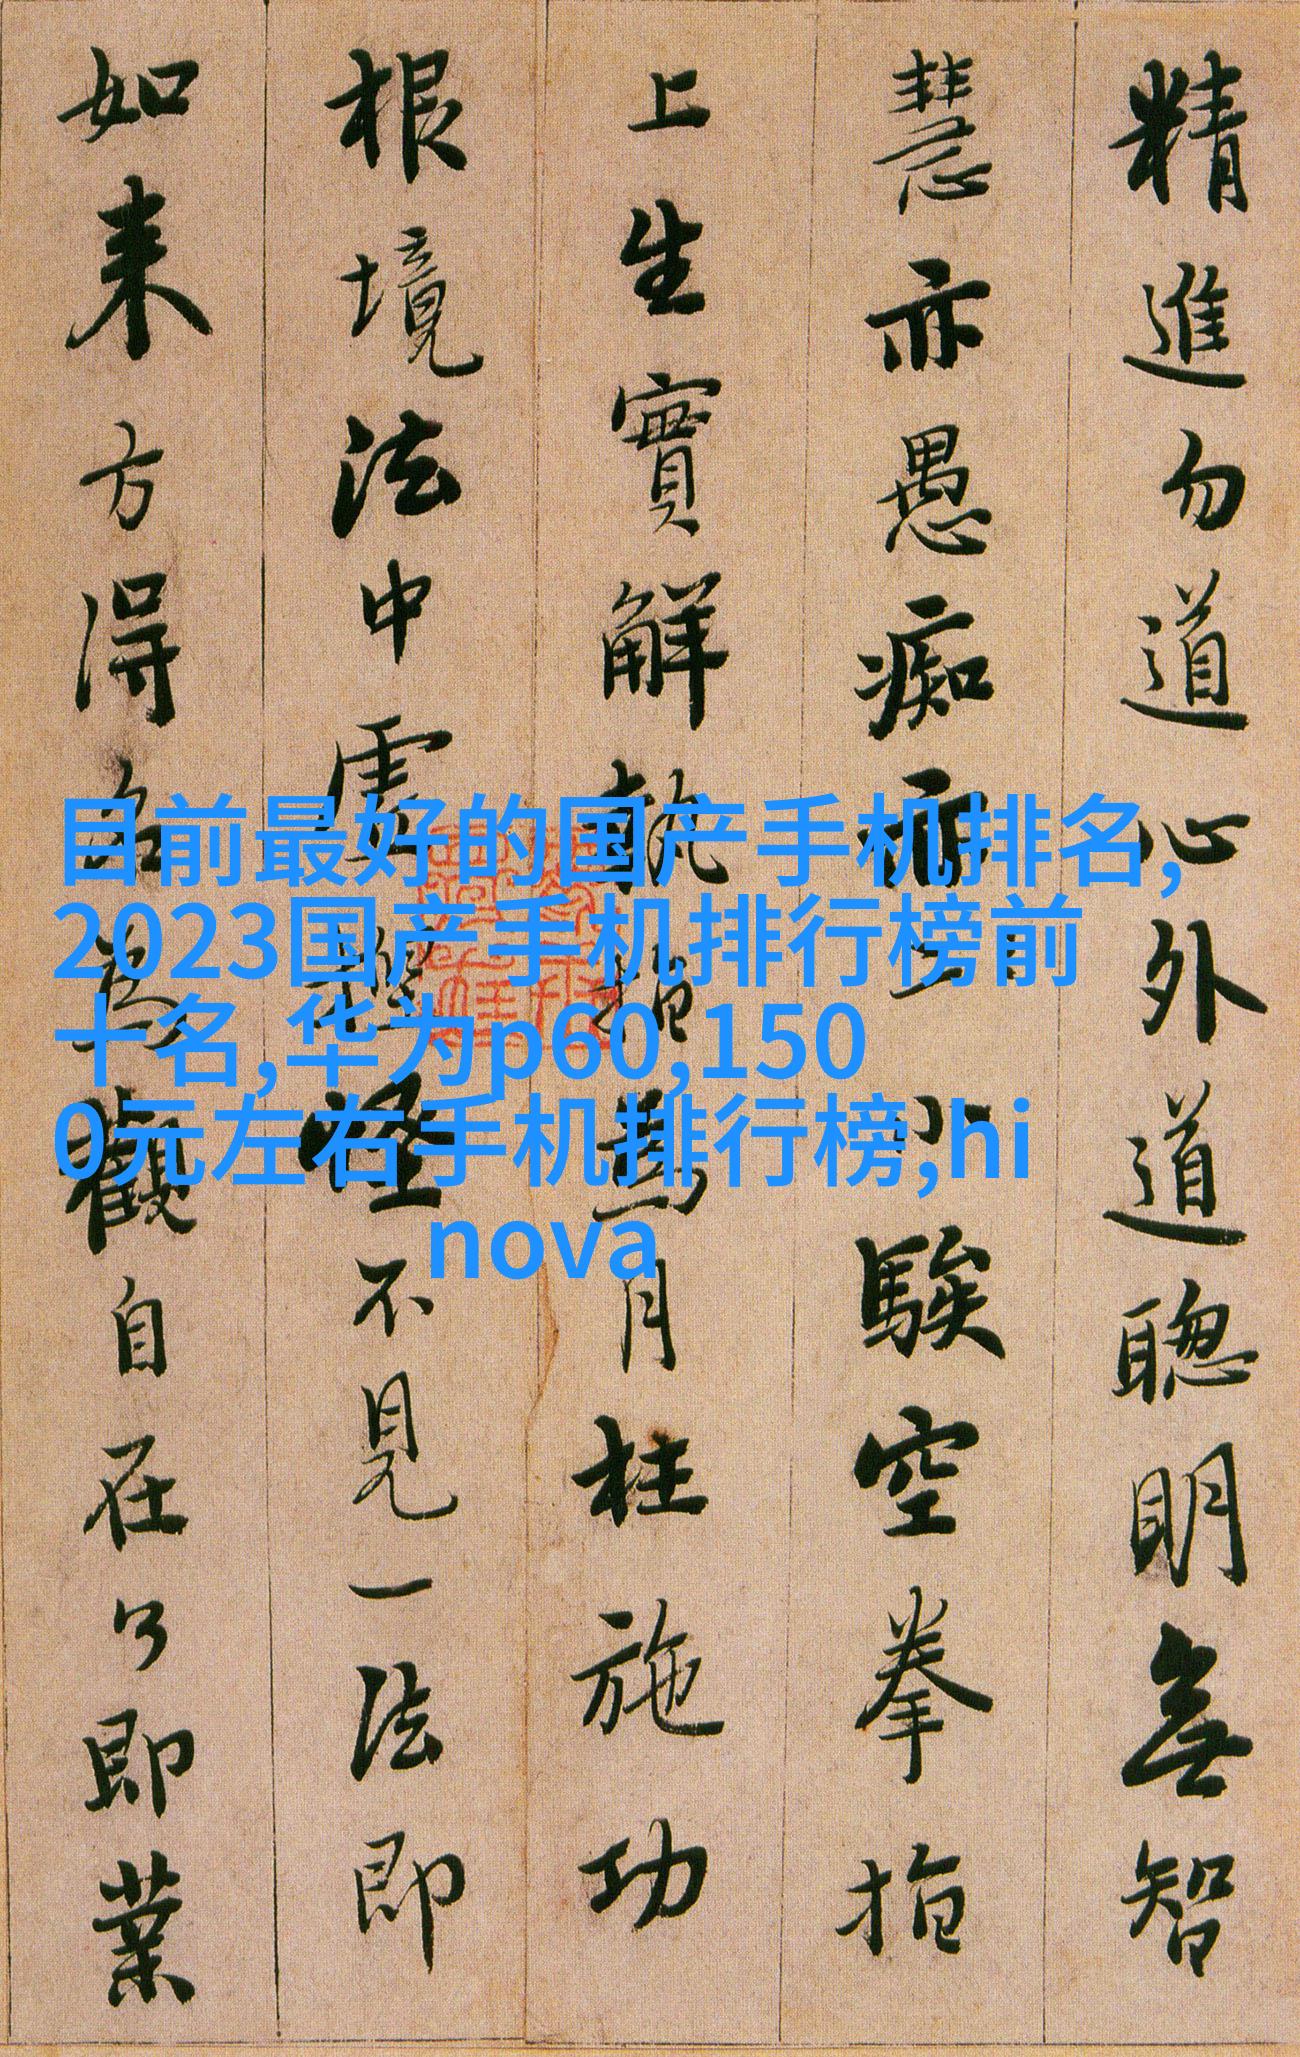 精進勿道心外道聰明無智
慧亦愚痴亦小騃空拳指
上生實解執指為月枉施功
根境法中虛捏怪不見一法即
如来方得名為觀自在了即業
目前最好的国产手机排名,
2023国产手机排行榜前
十名,华为p60,150
0元左右手机排行榜,hi
nova